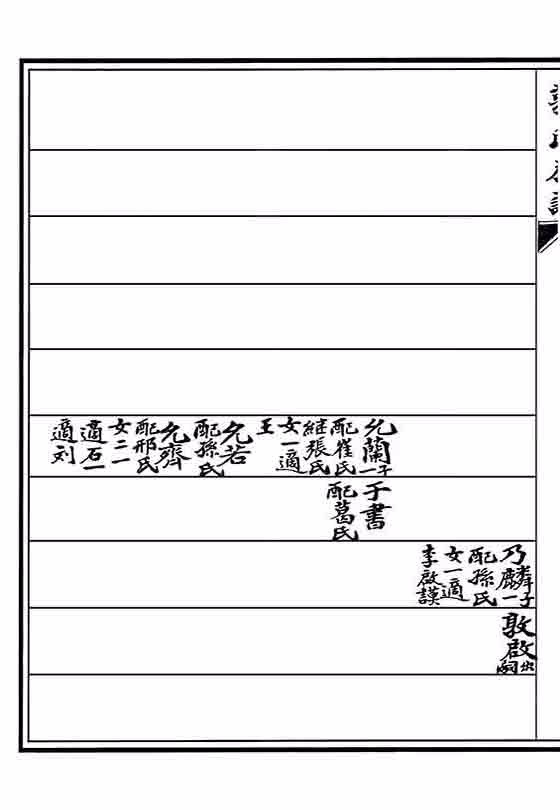 允蘭一子
配崔氏
繼張氏
女一適
王
允若
配孫氏
允齊
配邢氏
女二一
適石一
適刘
于書
配葛氏
乃麟一子
配孫氏
女一適
李啟謨
敦啟出嗣